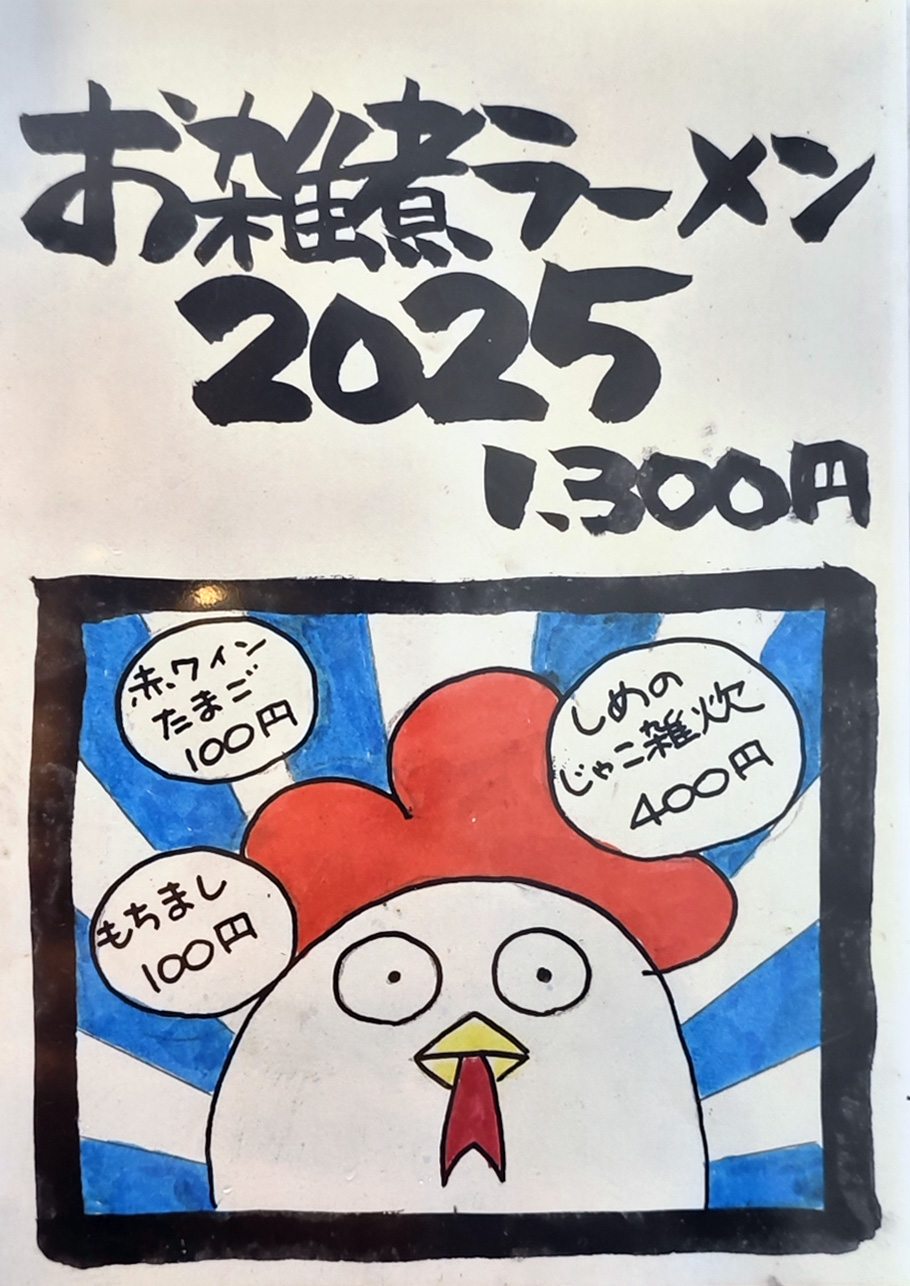 お雑煮ラーメン
2025
1.300円
赤ワイン
たまご
100円
しめの
じゃこ雑炊
400円
もちまし
100円